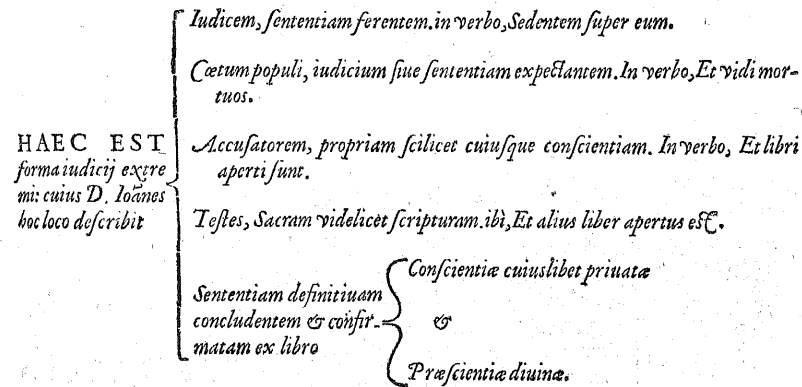 HAEC EST
forma iudicij extre
mi: cuius D. Ioãnes
hoc loco describit
Iudicem, sententiam ferentem. in verbo, Sedentem super eum.
Cœtum populi, iudicium siue sententiam expectantem. In verbo, Et vidi mor-
tuos.
Accusatorem, propriam scilicet cuiusque conscientiam. In verbo, Et libri
aperti sunt.
Testes, Sacram videlicet scripturam. ibì, Et alius liber apertus est.
Sententiam definitiuam
concludentem & confir-
matam ex libro
Conscientiæ cuiuslibet priuatæ
&
Præscientiæ diuinæ.